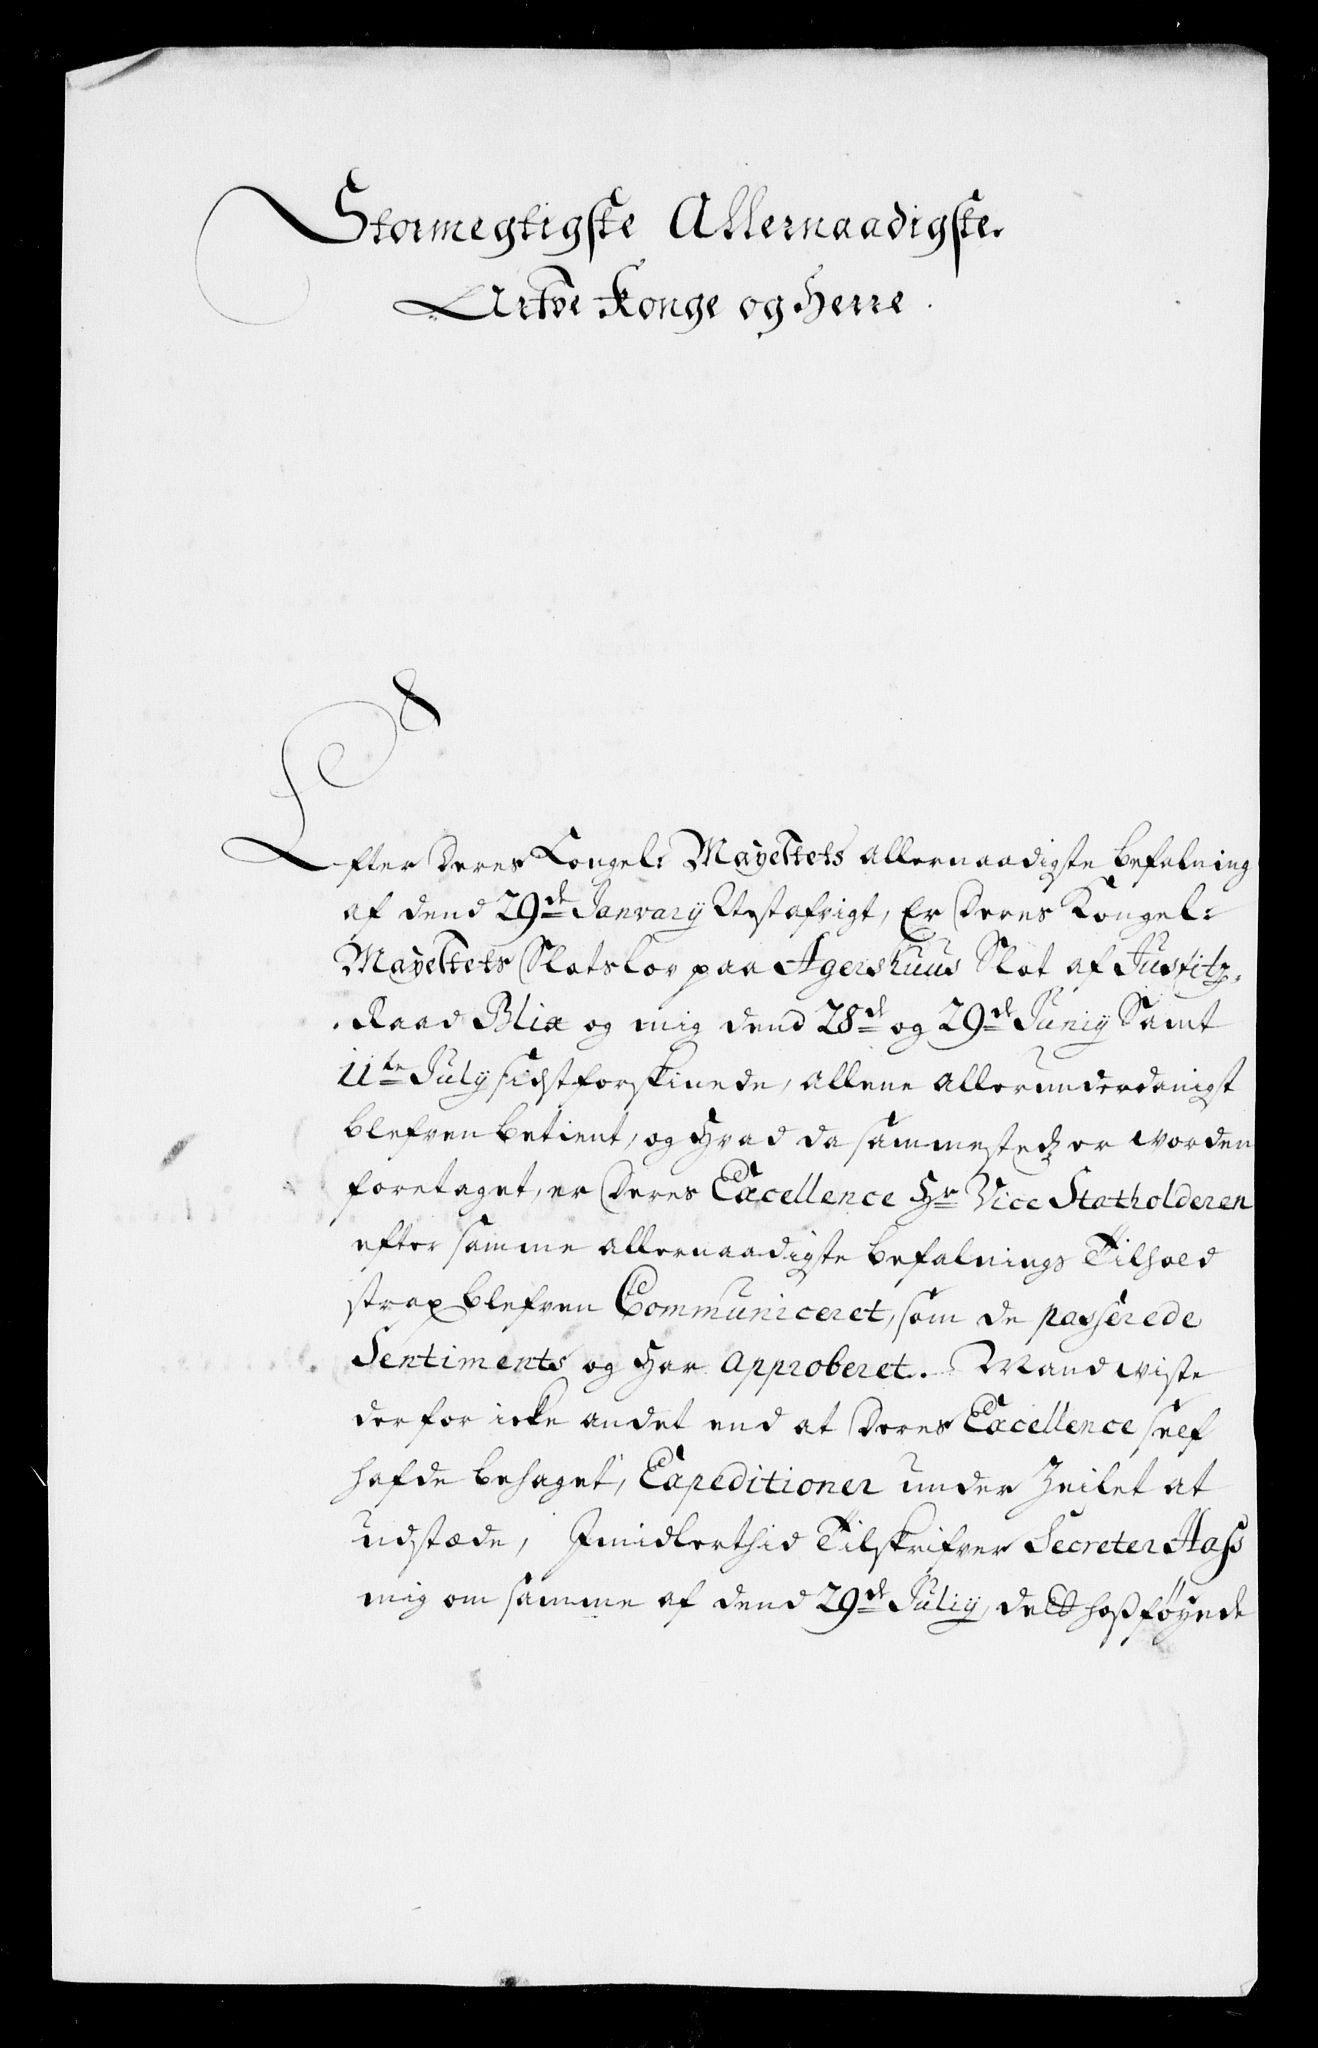 Stormegtigste Allernaadigste
Arfve Konge og Herre.
Efter Deres Kongel: Mayettets allernaadigste befalning
af dend 29de January Nestafvigt, Er Deres Kongel:
Mayettets Slotslov paa Agershuus Slot af Justitz-
Raad Blix og mig dend 28de og 29de Junij Samt
11te July sidstforskinede, allene allerunderdanigst
blefven betient, og Hvad da sammested er worden
foretaget, er Deres Excellence Hr Vice Statholderen
efter samme allernaadigste befalnings Tilhold
strax blefven Communiceret, som de passerede
Sentiments og har approberet. Mand wiste
derfor icke andet end at Deres Excellence self
hafde behaget, Expeditioner under Zeilet at
udstæde, Imidlerthid Tilskrifver Secreter Hass
mig om samme af dend 29de Julij, dett hosföyede